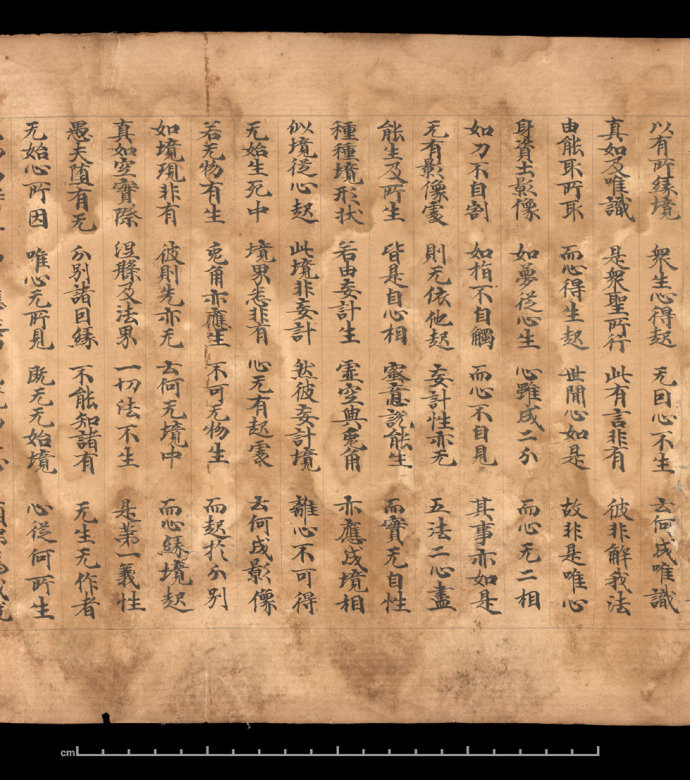 以有所緣境 衆生心得起 无因心不生 云何成唯識
真如及唯識 是衆聖所行 此有言非有 彼非解我法
由能取所取 而心得生起 世間心如是 故非是唯心
身資土影像 如夢從心生 心雖成二分 而心无二相
如刀不自割 如指不自觸 而心不自見 其事亦如是
无有影像處 則无依他起 妄計性亦无 五法二心盡
能生及所生 皆是自心相 密意說能生 而實无自性
種種境形狀 若由妄計生 虛空與兔角 亦應成境相
似境從心起 此境非妄計 然彼妄計境 離心不可得
无始生死中 境界悉非有 心无有起處 云何成影像
若无物有生 兔角亦應生 不可无物生 而起於分別
如境現非有 彼則先亦无 云何无境中 而心緣境起
真如空實際 涅槃及法界 一切法不生 是第一義性
愚夫墮有无 分別諸因緣 不能知諸有 无生无作者
无始心所因 唯心无所見 既无无始境 心從何所生
cm